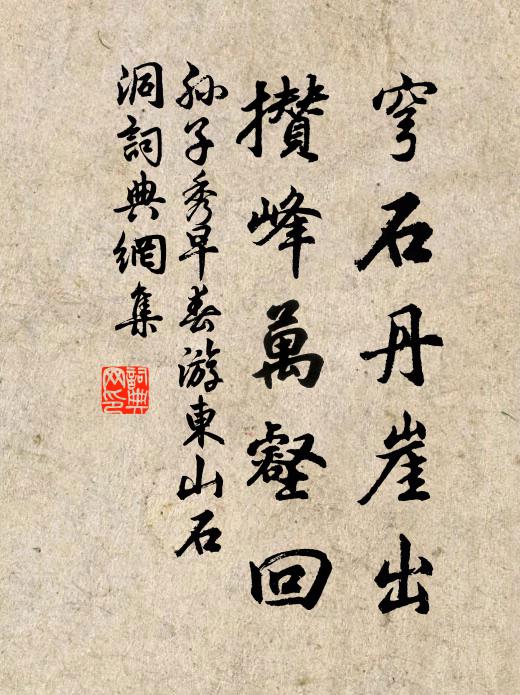 穹石丹崖出
攢峰萬壑回
孙子秀早春游東山石
洞詞典網集
詞典
网印